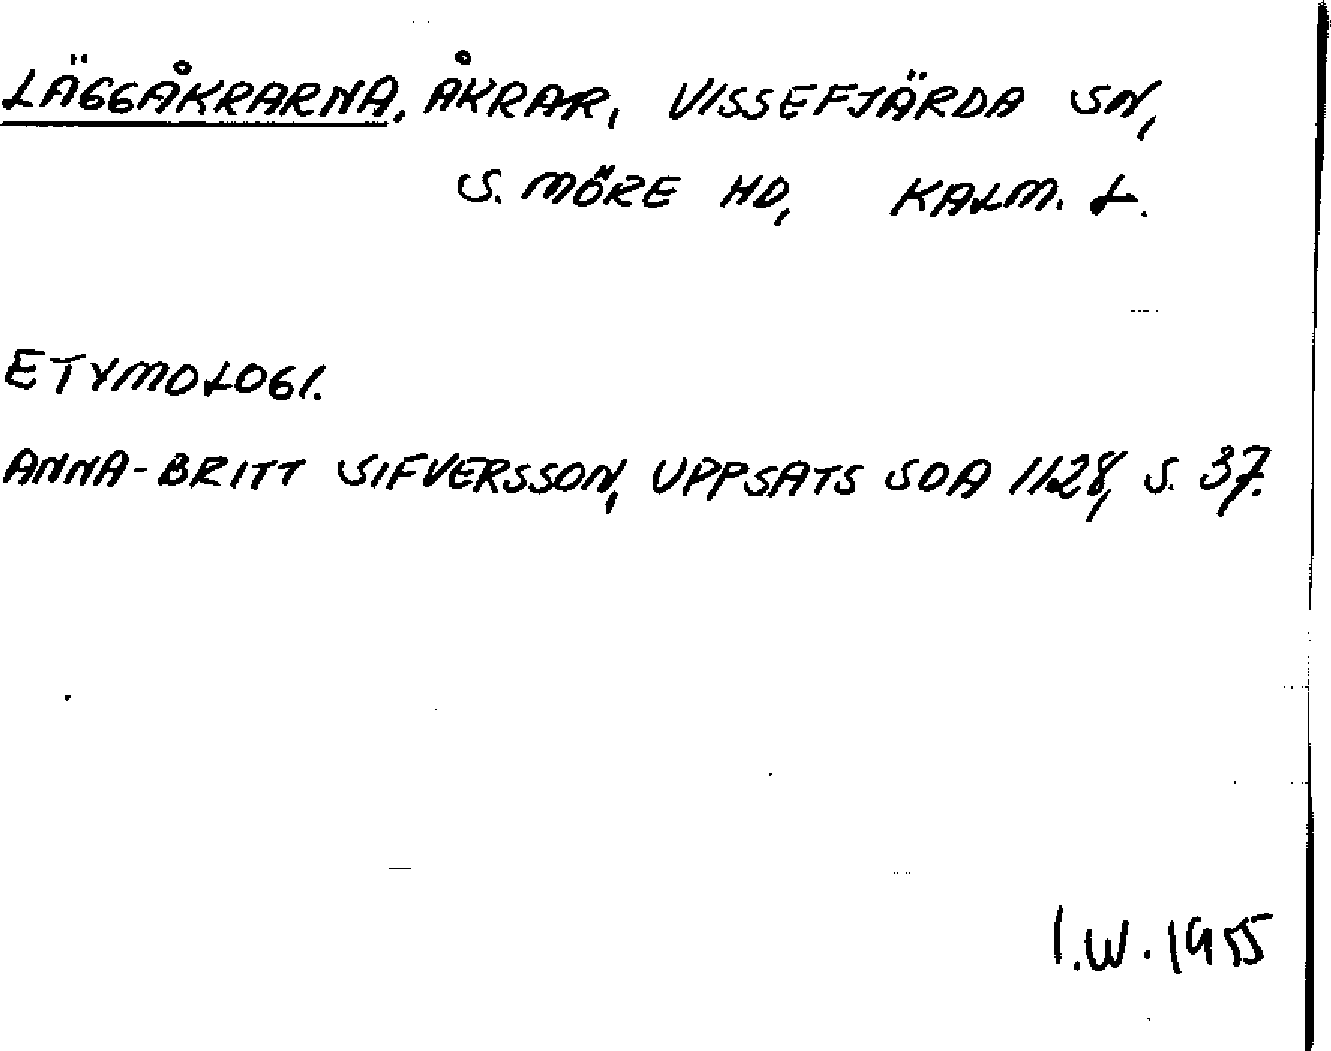 LÄGGÅKRARNA, ÅKRAR, VISSEFJÄRDA SN,
S. MÖRE HD, KALM. L.
ETYMOLOGI.
ANNA-BRITT SIFVERSSON, UPPSATS SOA 1128, S. 37.
I.W. 1955